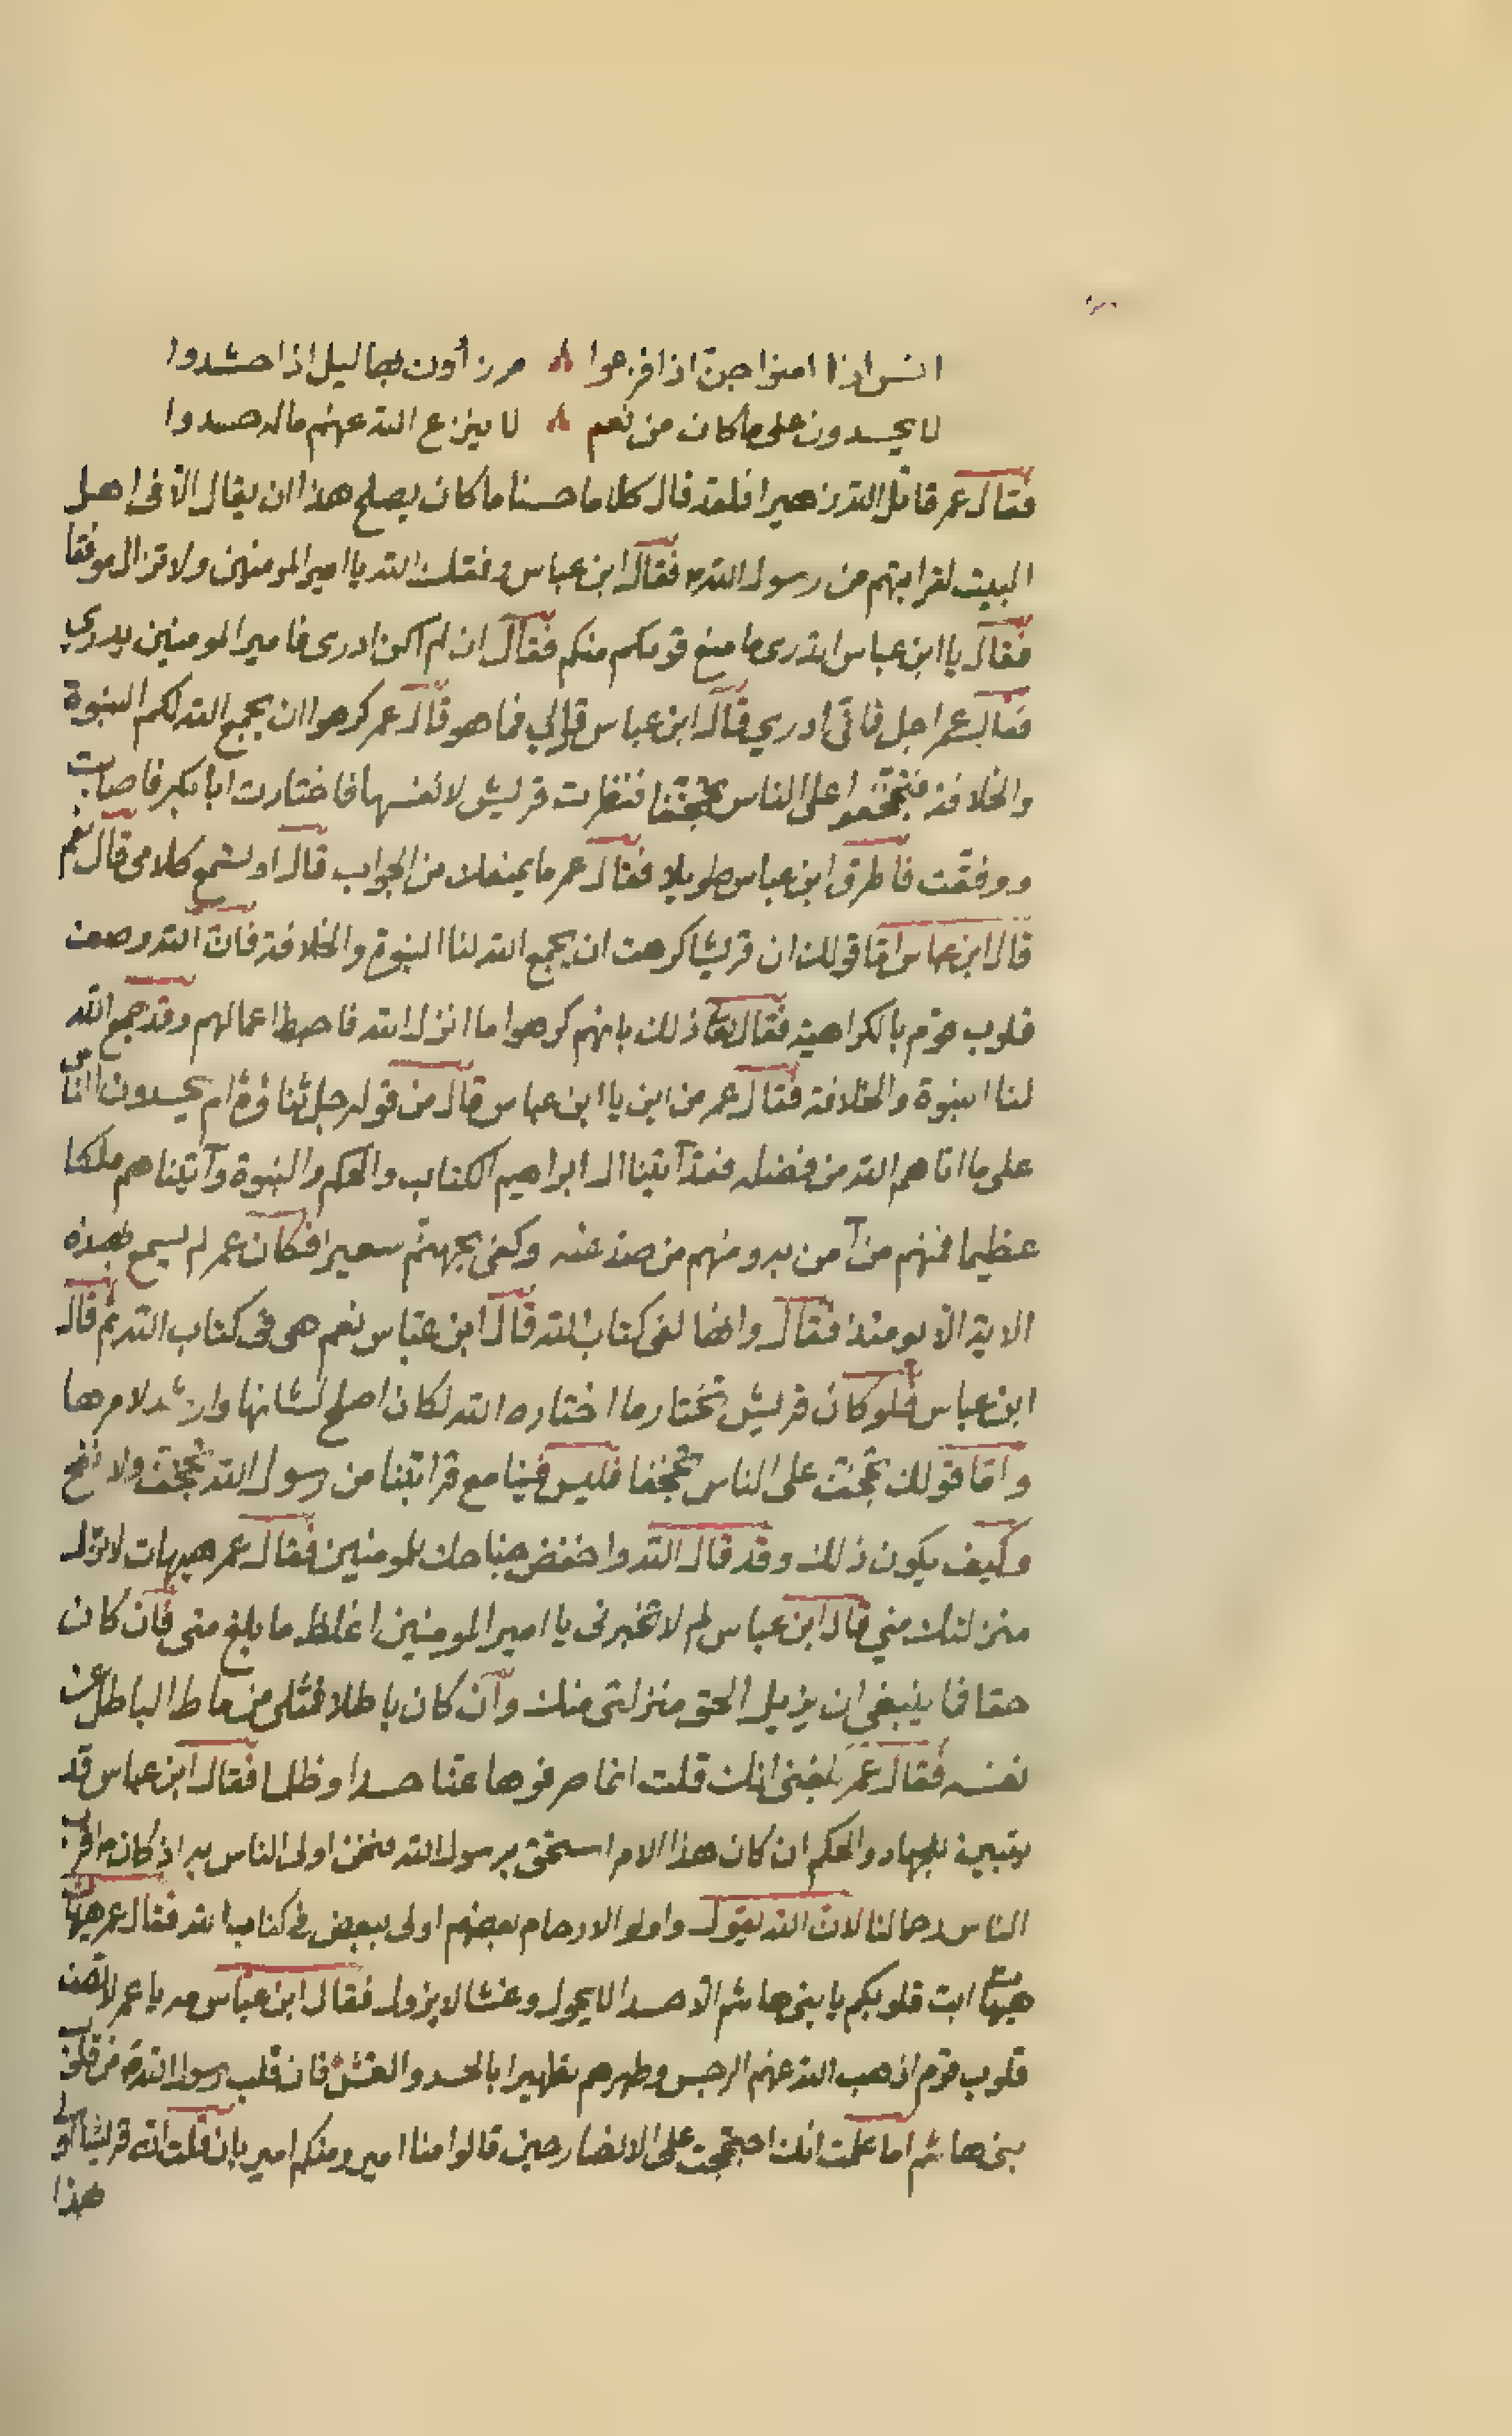 انس اذا امنوا جنّ اذا فزعوا مرزأون بهاليل اذا حشدوا
لا يحسدون على ما كان من نعم لا ينزع الله عنهم ماله حسدوا
فقال عمر قاتل الله زهيرا فلقد قال كلاما حسنا ما كان يصلح هذا ان يقال الّا فى اهل
البيت لقرابتهم من رسول الله فقال ابن عباس وفقك الله يا امير المومنين ولا تزال موفقا
فقال يا ابن عباس اتدرى ما منع قومكم منكم فقال ان لم اكن ادرى فامير المومنين يدري
فقال عمر اجل فانّى ادري قال ابن عباس فما هو قال عمر كرهوا ان يجمع الله لكم النبوة
والخلافة على الناس فنظرت قريش لانفسها فاختارت ابا بكر فاصابت
ووفقت فاطرق ابن عباس طويلا فقال عمر ما يمنعك من الجواب قال اوتسمع كلامى قال نعم
قال ابن عباس امّا قولك ان قريشا كرهت ان يجمع الله لنا النبوة والخلافة فانّ الله وصف
قلوب قوم بالكراهية فقال ذلك بانهم كرهوا ما انزل الله فاحبط اعمالهم وقد جمع الله
لنا النبوة والخلافة فقال عمر من اين يا ابن عباس قال من قوله جل ثناؤه ام يحسدون الناس
على ما اتاهم الله من فضله فقد آتينا ال ابراهيم الكتاب والحكم والنبوة وآتيناهم ملكا
عظيما فمنهم من آمن به ومنهم من صد عنه وكفى بجهنّم سعيرا فكان عمر لم يسمع بهذه
الاية الّا يومئذ فقال وانها لفى كتاب الله قال ابن عبّاس نعم هى فى كتاب الله ثم قال
ابن عباس فلو كان قريش تختار ما اختاره الله لكان اصلح لشانها وارشد لامرها
وامّا قولك على الناس فليس فينا مع قرابتنا من رسول الله ولا
وكيف يكون ذلك وقد قال الله واخفض جناحك للمومنين فقال عمر هيهات
منزلتك مني قال ابن عباس لم لا تخبرنى يا امير المومنين اغلظ ما بلغ منى فان كان
حقا فما ينبغى ان يزيل الحق منزلتى منك وان كان باطلا فمثلى من ماط الباطل عن
نفسه فقال عمر بلغنى انك قلت انما صرفوها عنّا حسدا وظلما فقال ابن عباس قد
يتبين للجهاد والحكم ان كان هذا الامر استحق برسول الله فنحن اولى الناس به اذ كان اقرب
الناس رحما لنا لانّ الله يقول واولو الارحام بعضهم اولى ببعض فى كتاب الله فقال عمر هيهات
هيهات ابت قلوبكم يا بنى هاشم الّا حسدا لا يحول وغشا لا يزول فقال ابن عبّاس مه يا عمر لا تصف
قلوب قوم اذهب الله عنهم الرجس وطهرهم تطهيرا بالحسد والغشّ فان قلب رسول الله من قلوب
بنى هاشم اما علمت انك احتججت على الانصار حين قالوا منا امير ومنكم امير بان قلت ان قريشا اولى
هذا